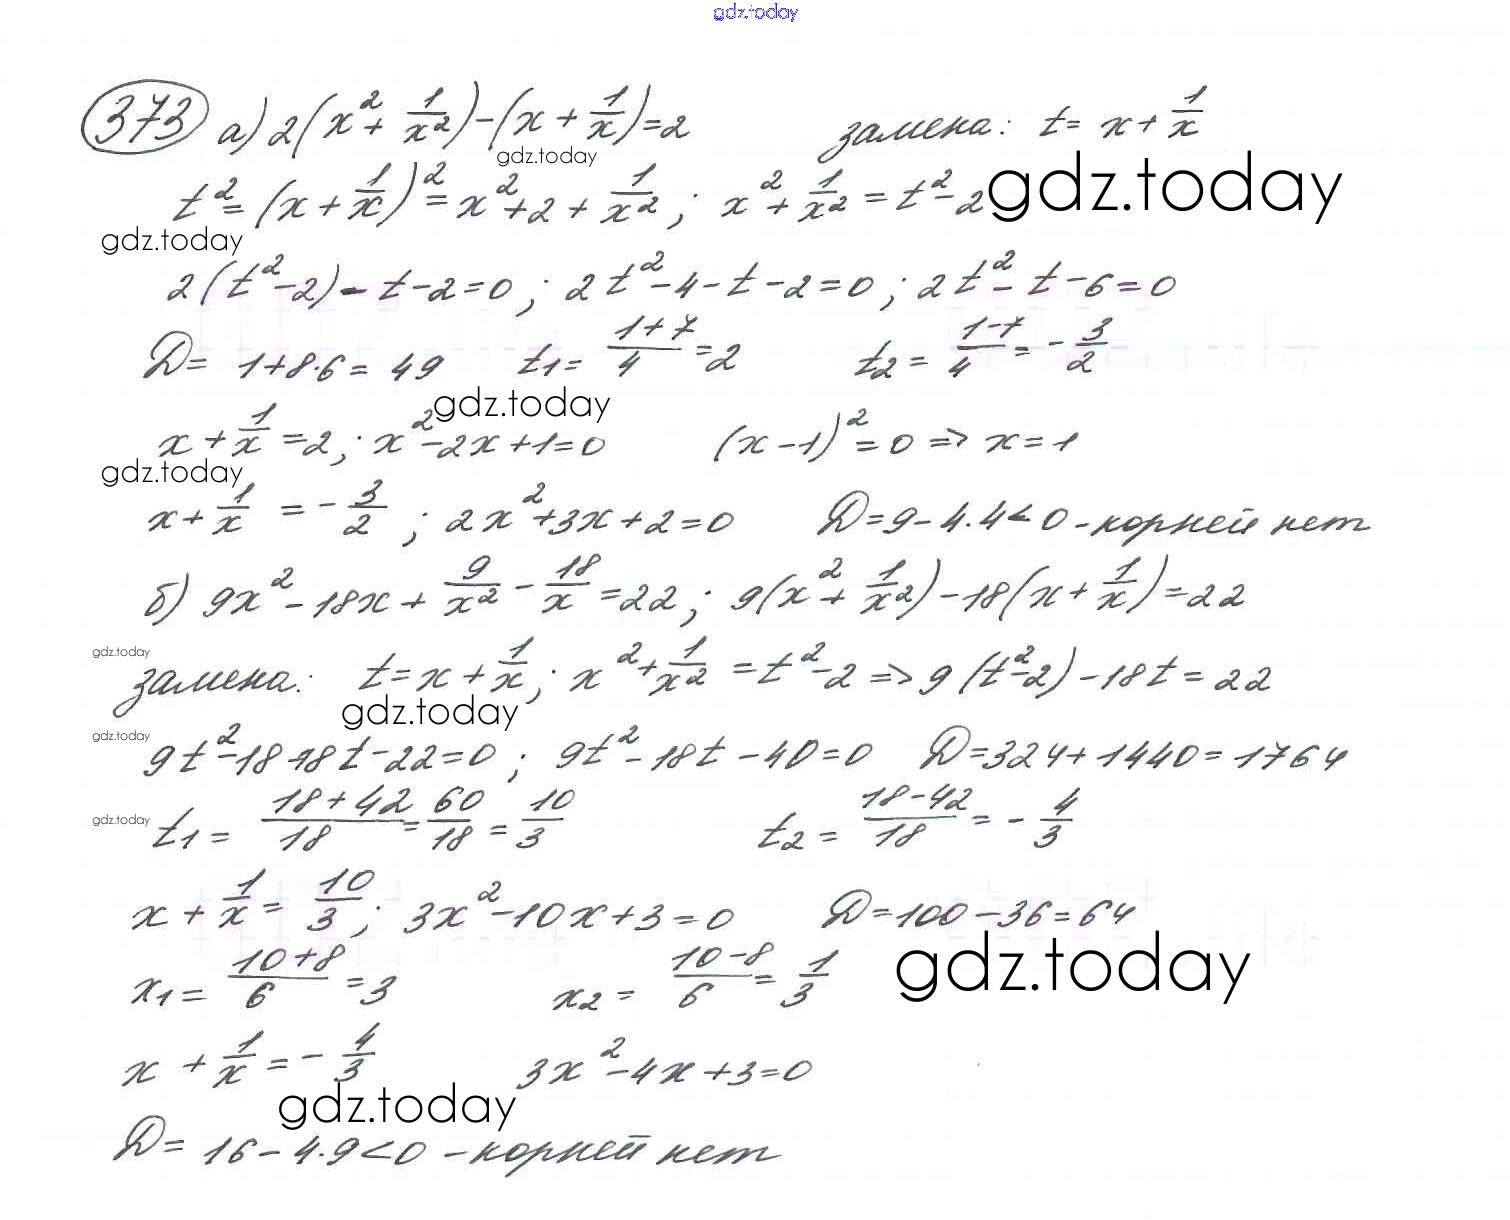 gdz.today
373 а) 2(x² + 1/x²) - (x + 1/x) = 2 замена: t = x + 1/x
gdz.today
t² = (x + 1/x)² = x² + 2 + 1/x²; x² + 1/x² = t² - 2 gdz.today
gdz.today
2(t² - 2) - t - 2 = 0; 2t² - 4 - t - 2 = 0; 2t² - t - 6 = 0
D = 1 + 8·6 = 49 t₁ = (1+7)/4 = 2 t₂ = (1-7)/4 = -3/2
gdz.today
x + 1/x = 2; x² - 2x + 1 = 0 (x - 1)² = 0 => x = 1
gdz.today
x + 1/x = -3/2; 2x² + 3x + 2 = 0 D = 9 - 4·4 < 0 - корней нет
б) 9x² - 18x + 9/x² - 18/x = 22; 9(x² + 1/x²) - 18(x + 1/x) = 22
gdz.today
замена: t = x + 1/x; x² + 1/x² = t² - 2 => 9(t² - 2) - 18t = 22
gdz.today
gdz.today
9t² - 18 - 18t - 22 = 0; 9t² - 18t - 40 = 0 D = 324 + 1440 = 1764
gdz.today
t₁ = (18+42)/18 = 60/18 = 10/3 t₂ = (18-42)/18 = -4/3
x + 1/x = 10/3; 3x² - 10x + 3 = 0 D = 100 - 36 = 64
gdz.today
x₁ = (10+8)/6 = 3 x₂ = (10-8)/6 = 1/3
x + 1/x = -4/3 3x² - 4x + 3 = 0
gdz.today
D = 16 - 4·9 < 0 - корней нет